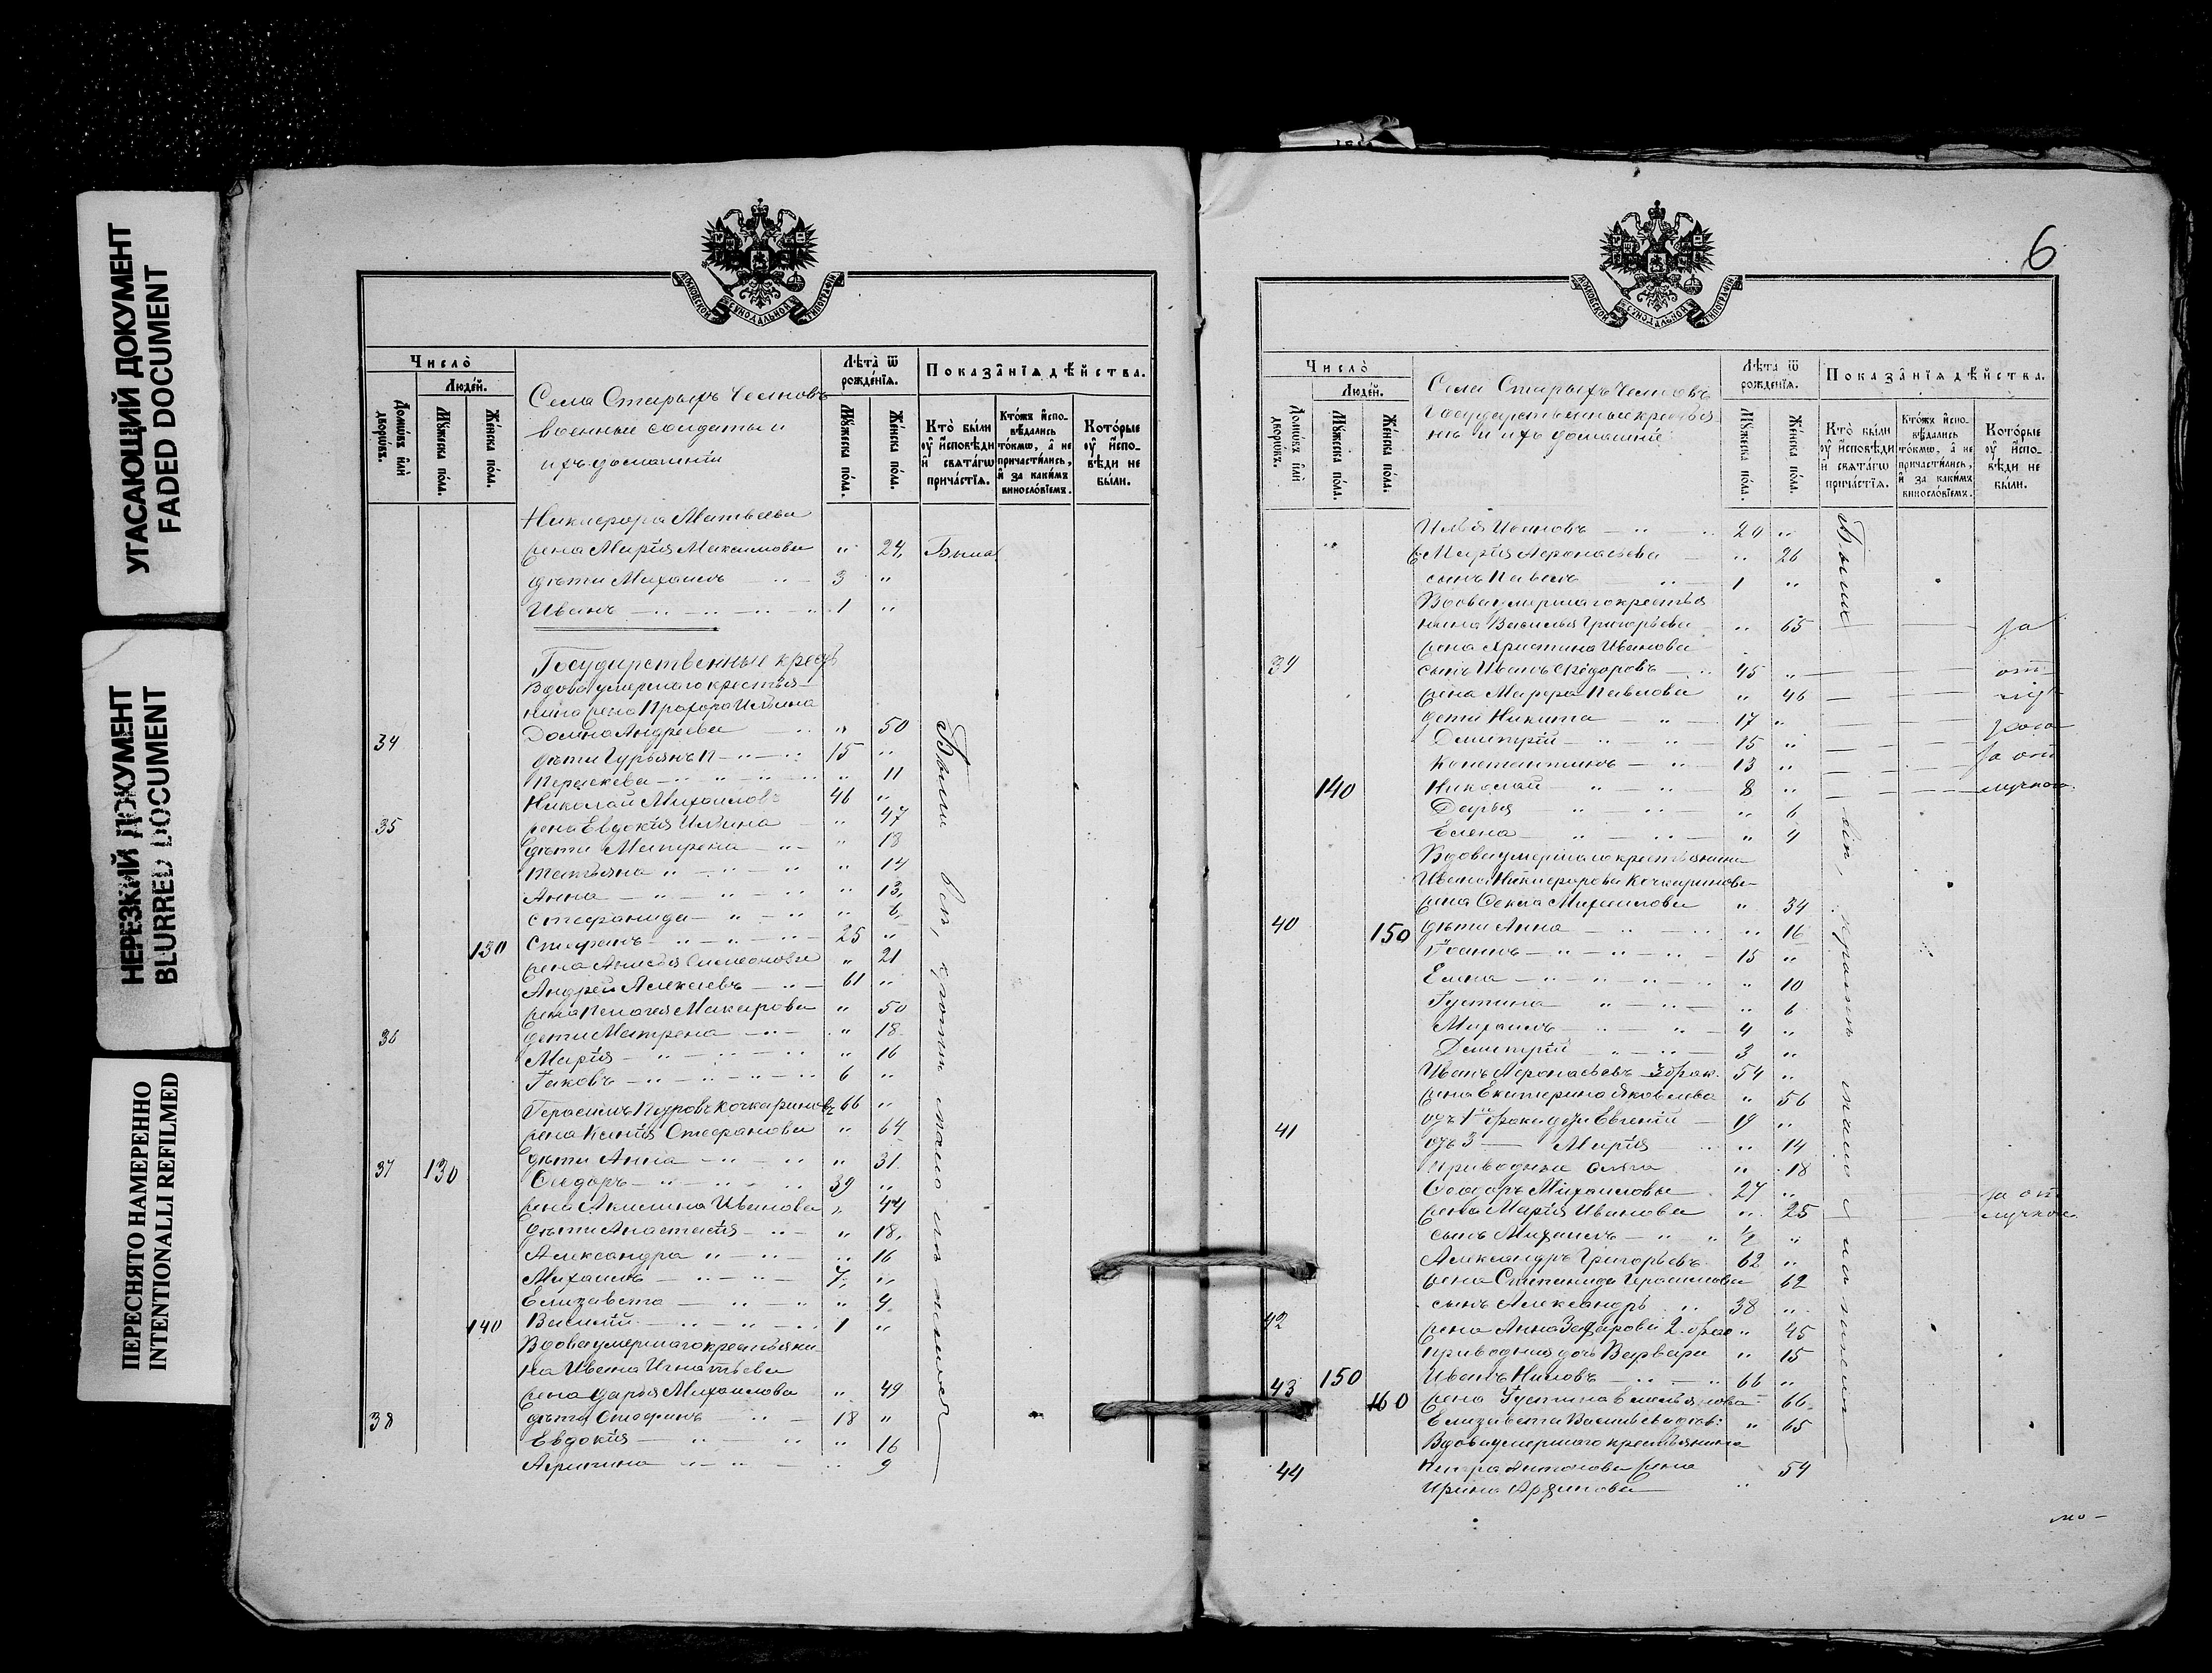 УГАСАЮЩИЙ ДОКУМЕНТ
FADED DOCUMENT
НЕРЕЗКИЙ ДОКУМЕНТ
BLURRED DOCUMENT
ПЕРЕСНЯТО НАМЕРЕННО
INTENTIONALLI REFILMED
МОСКОВСКОЙ СѴНОДАЛЬНОЙ ТИПОГРАФІИ
Число̀
Людей.
Домѡвъ и҆лѝ дворѡвъ.
Мꙋжеска пола.
Женска пола.
Села Старыхъ Челновъ
военные солдаты и
ихъ домашніи
Лѣта̀ ѿ рожденїѧ.
Мꙋжеска пола.
Женска пола.
Показанїѧ дѣйства.
Кто̀ были ᲂу҆ и҆сповѣди и҆ свѧтагѡ причастїѧ.
Ктѡжъ и҆сповѣдались токмѡ, а҆ не причастились, и҆ за какимъ винословїемъ.
Которые ᲂу҆ и҆сповѣди не были.
Никифора Матвѣева
жена Марія Максимова " 24 Была
дѣти Михаилъ 3 "
Иванъ 1 "
Государственные крест
Вдова умершаго крестья-
нина жена Прохора Ильина
34 Андреева " 50
дѣти Гурьянъ 15 "
Параскева " 11
Николай Михаиловъ 46 "
35 жена Евдокія Ильина " 47
дѣти Матрена " 18
Татьяна " 14
Анна " 13
Стефанида " 6
130 Стефанъ 25 "
жена Симеонова " 21
Андрей Алексеевъ 61 "
жена Пелагея Макарова " 50
36 дети Матрена " 18
Марія " 16
Іаковъ 6 "
Герасимъ Петровъ Кочкариновъ 66 "
жена Ксенія Стефанова " 64
37 130 дѣти Анна " 31
Ѳедоръ 39 "
жена Акилина Иванова " 44
дѣти Анастасія " 18
Александра " 16
Михаилъ 7 "
Елизавета " 4
140 Василій 1 "
Вдова умершаго крестьяни-
на Ивана Игнатьева
жена Дарья Михаилова " 49
38 дѣти Стефанъ 18 "
Евдокія " 16
Агрипина " 9
Были
6
МОСКОВСКОЙ СѴНОДАЛЬНОЙ ТИПОГРАФІИ
Число̀
Людей.
Домѡвъ и҆лѝ дворѡвъ.
Мꙋжеска пола.
Женска пола.
Села Старыхъ Челновъ
Государственные крестья
не и ихъ домашніе
Лѣта̀ ѿ рожденїѧ.
Мꙋжеска пола.
Женска пола.
Показанїѧ дѣйства.
Кто̀ были ᲂу҆ и҆сповѣди и҆ свѧтагѡ причастїѧ.
Ктѡжъ и҆сповѣдались токмѡ, а҆ не причастились, и҆ за какимъ винословїемъ.
Которые ᲂу҆ и҆сповѣди не были.
Илья Ивановъ 24 "
Марія Афонасьева " 26
сынъ Павелъ 1 "
Вдова умершаго крестья
нина Василья Григорьева " 65 за
жена Христина Иванова
39 сынъ Иванъ Ѳедоровъ 45 " от
жена Марфа Павлова " 46
дети Никита 17 "
Димитрій 15 " за от
Константинъ 13 "
140 Николай 8 " лучкою
Дарья " 6
Елена " 4
Вдова умершаго крестьянина
Ивана Никифорова Кочкаринова
жена Ѳекла Михаилова " 34
40 150 дѣти Анна " 16
Іоаннъ 15 "
Елена " 10
Іустина " 6
Михаилъ 4 "
Димитрій 3 "
Иванъ Афонасьевъ 3 брак. 54 "
жена Екатерина Яковлева " 56
41 отъ 1 брака дети Евгеній 19 "
отъ 3 Марія " 14
Приводная Ольга " 18
Ѳеодоръ Михаиловъ 27 " за от
жена Марія Иванова " 25 лучкою
сынъ Михаилъ ½ "
Александръ Григорьевъ 62 "
жена Степанида Герасимова 62
сынъ Александръ 38 "
42 жена Анна Захарова 2 брак " 45
Приводная дочь Варвара " 15
43 150 Иванъ Ниловъ 66 "
160 жена Іустина Емельянова 66
Елизавета Васильева " 65
Вдова умершаго крестьянина
44 Петра Антонова жена " 54
Ирина
Были